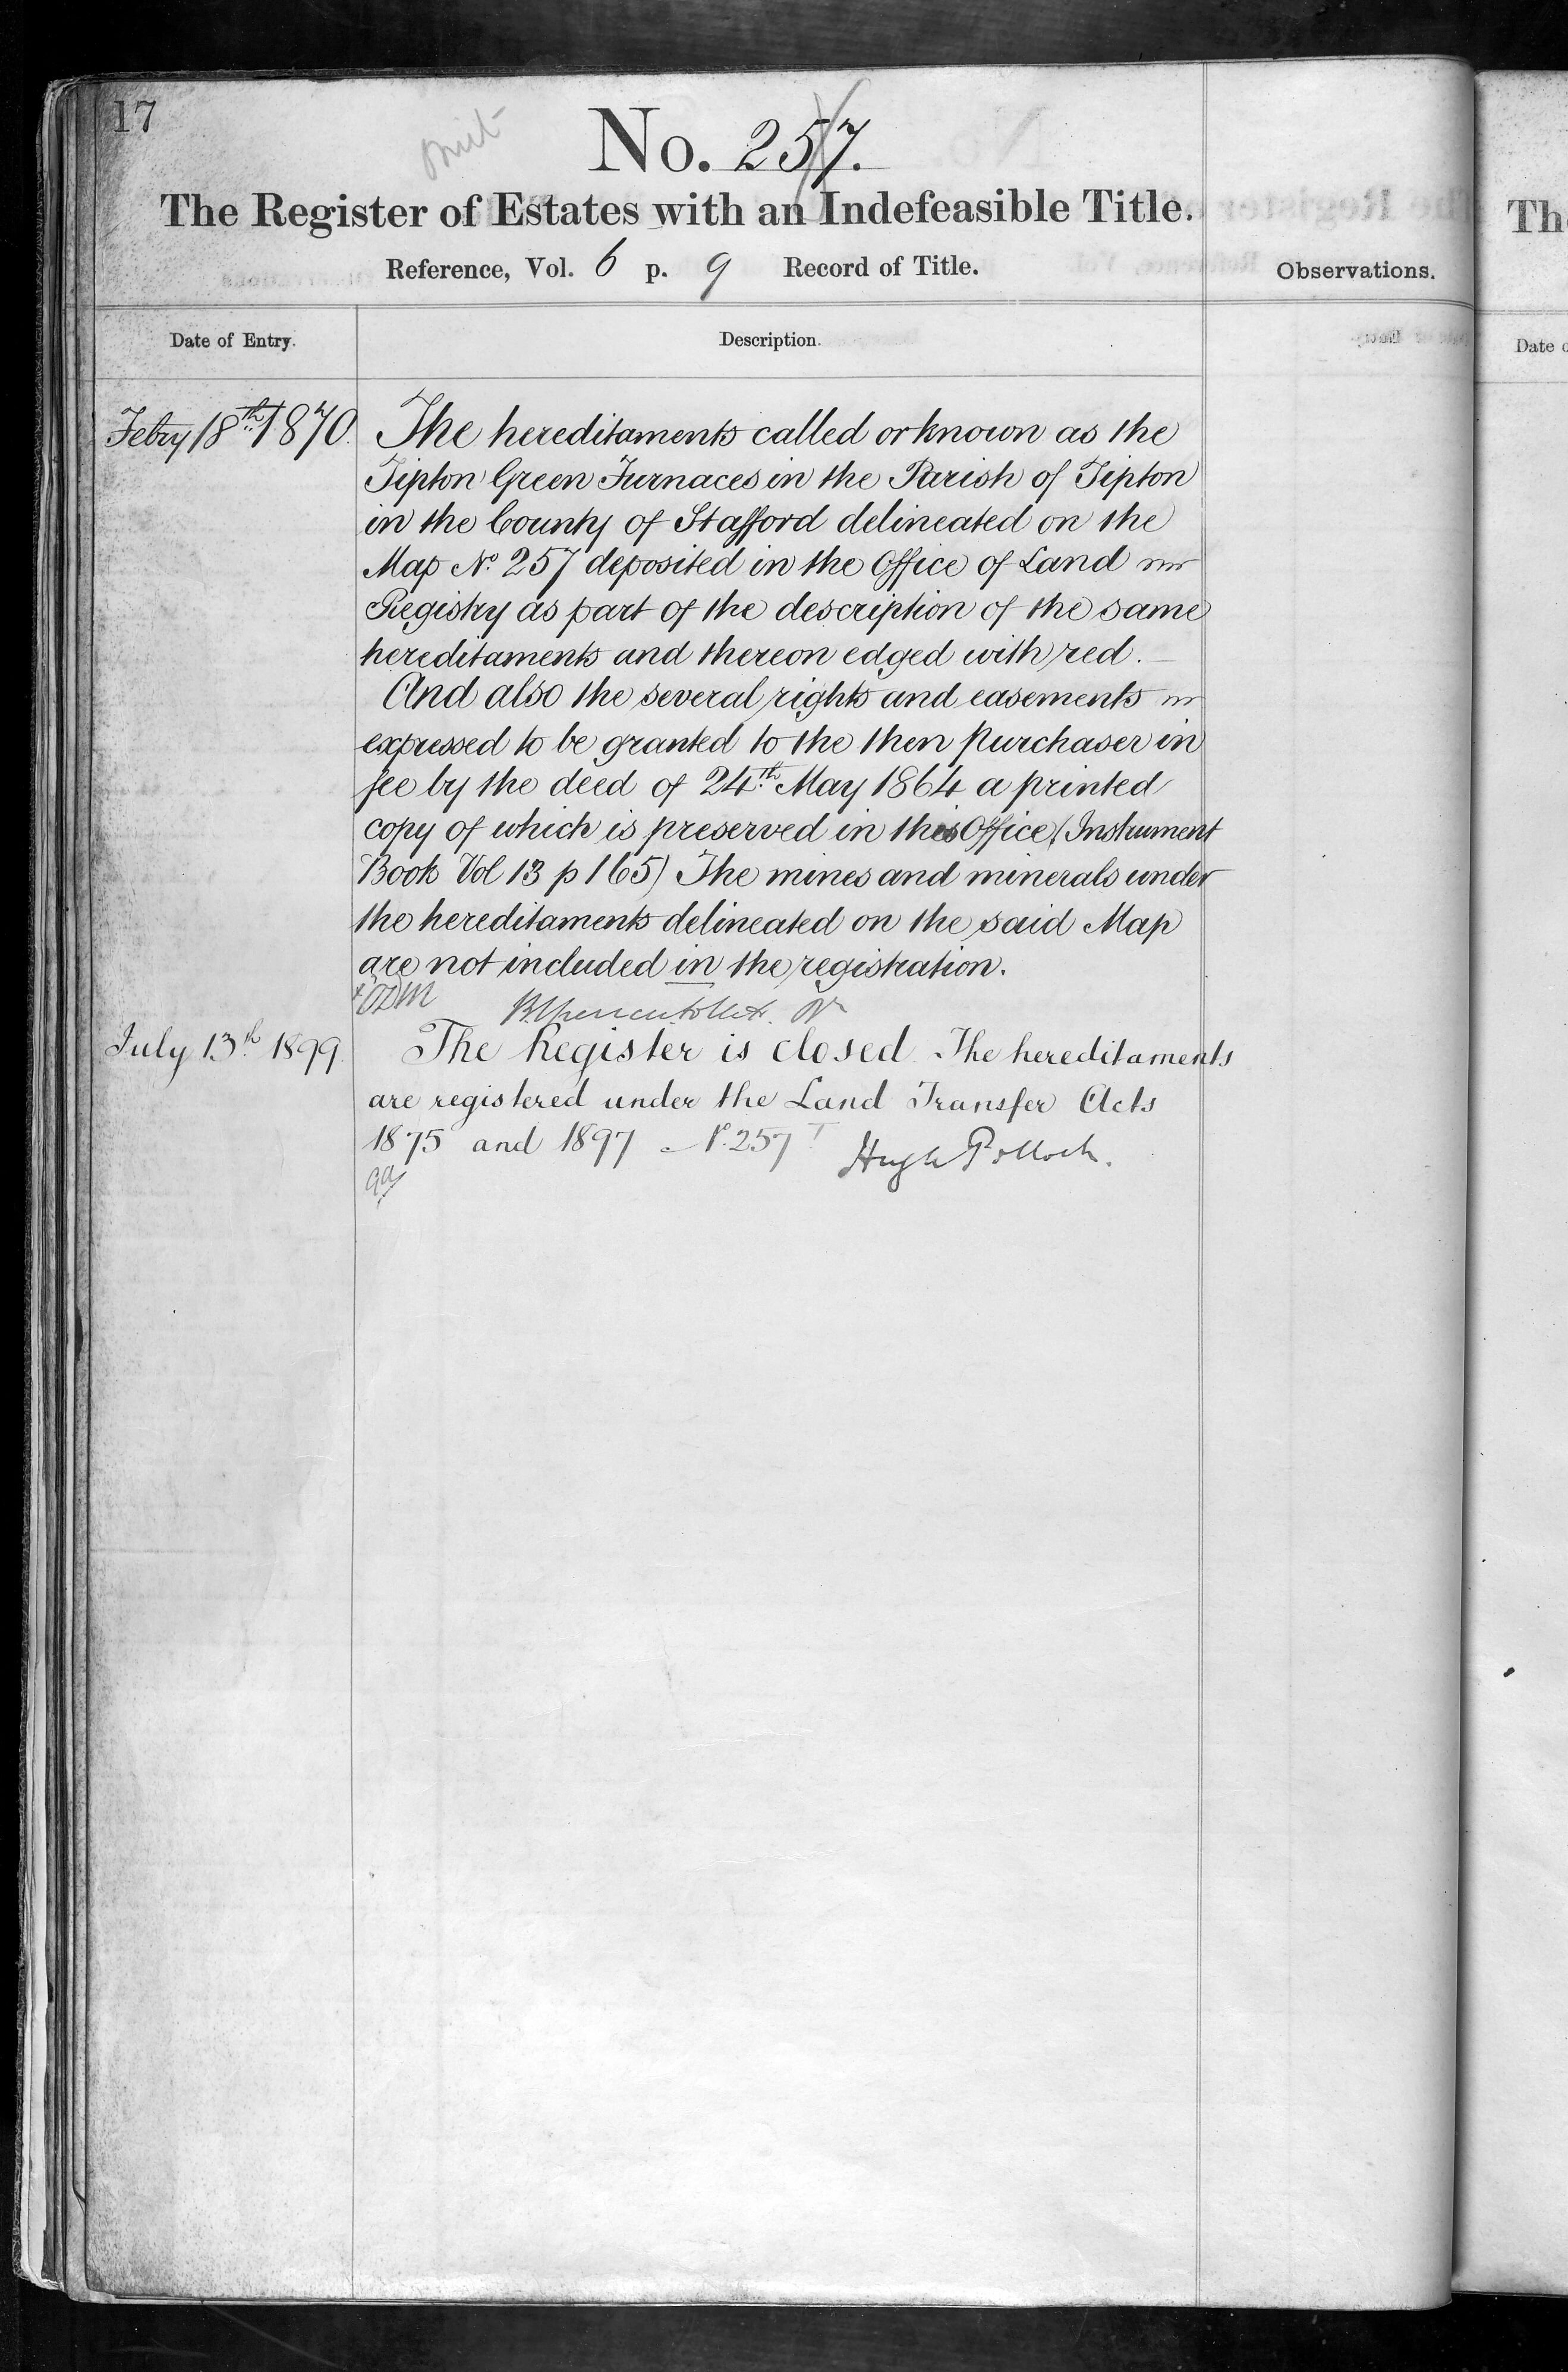 17
No. 257.
The Register of Estates with an Indefeasible Title.
Reference, Vol. 6 p. 9 Record of Title.
Observations.
Date of Entry.
Description.
Febry 18th 1870.
The hereditaments called or known as the
Tipton Green Furnaces in the Parish of Tipton
in the County of Stafford delineated on the
Map No. 257 deposited in the Office of Land
Registry as part of the description of the same
hereditaments and thereon edged with red.
And also the several rights and easements
expressed to be granted to the then purchaser in
fee by the deed of 24th May 1864 a printed
copy of which is preserved in this Office (Instrument
Book Vol 13 p 165) The mines and minerals under
the hereditaments delineated on the said Map
are not included in the registration.
July 13th 1899.
The Register is closed. The hereditaments
are registered under the Land Transfer Acts
1875 and 1897 No. 257
Hugh Pollock.
Th
Date o